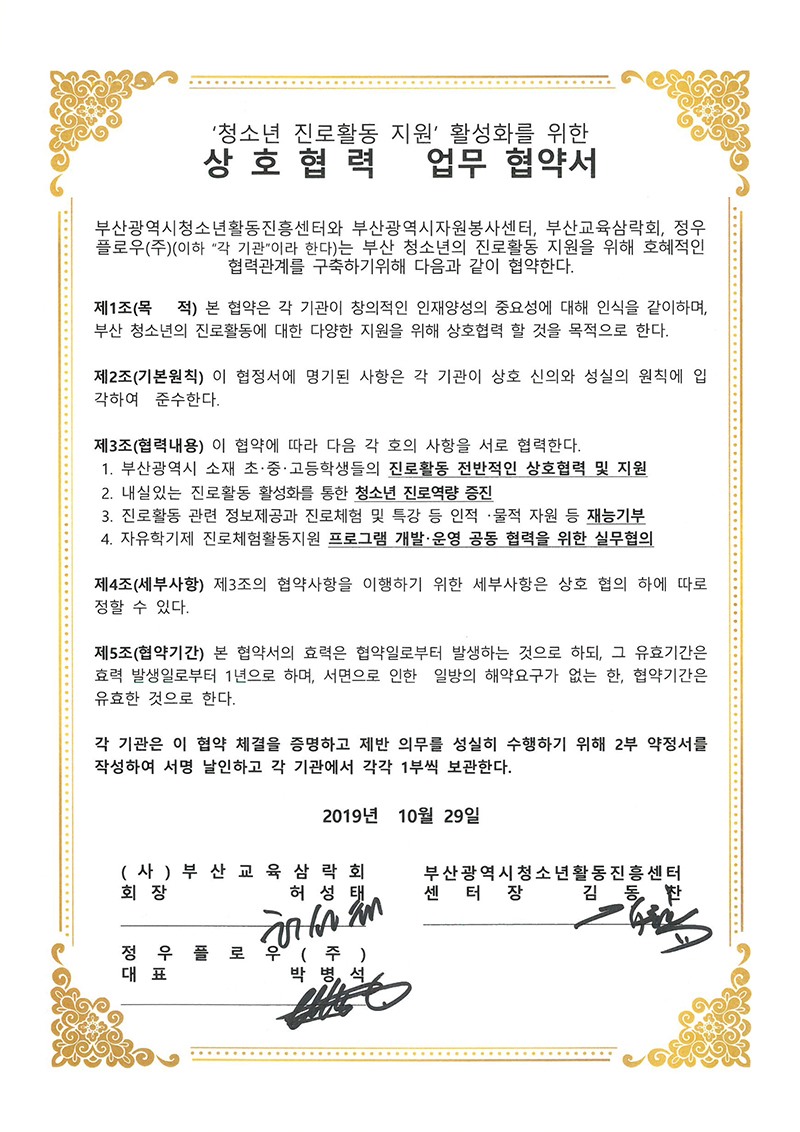 '청소년 진로활동 지원' 활성화를 위한
상 호 협 력 업무 협약서
부산광역시청소년활동진흥센터와 부산광역시자원봉사센터, 부산교육삼락회, 정우
플로우(주)(이하 "각 기관"이라 한다)는 부산 청소년의 진로활동 지원을 위해 호혜적인
협력관계를 구축하기위해 다음과 같이 협약한다.
제1조(목 적) 본 협약은 각 기관이 창의적인 인재양성의 중요성에 대해 인식을 같이하며,
부산 청소년의 진로활동에 대한 다양한 지원을 위해 상호협력 할 것을 목적으로 한다.
제2조(기본원칙) 이 협정서에 명기된 사항은 각 기관이 상호 신의와 성실의 원칙에 입
각하여 준수한다.
제3조(협력내용) 이 협약에 따라 다음 각 호의 사항을 서로 협력한다.
1. 부산광역시 소재 초·중·고등학생들의 진로활동 전반적인 상호협력 및 지원
2. 내실있는 진로활동 활성화를 통한 청소년 진로역량 증진
3. 진로활동 관련 정보제공과 진로체험 및 특강 등 인적 ·물적 자원 등 재능기부
4. 자유학기제 진로체험활동지원 프로그램 개발·운영 공동 협력을 위한 실무협의
제4조(세부사항) 제3조의 협약사항을 이행하기 위한 세부사항은 상호 협의 하에 따로
정할 수 있다.
제5조(협약기간) 본 협약서의 효력은 협약일로부터 발생하는 것으로 하되, 그 유효기간은
효력 발생일로부터 1년으로 하며, 서면으로 인한 일방의 해약요구가 없는 한, 협약기간은
유효한 것으로 한다.
각 기관은 이 협약 체결을 증명하고 제반 의무를 성실히 수행하기 위해 2부 약정서를
작성하여 서명 날인하고 각 기관에서 각각 1부씩 보관한다.
2019년 10월 29일
(사)부산교육삼락회
회장 허성태
부산광역시청소년활동진흥센터
센터장 김동찬
정우플로우(주)
대표 박병석